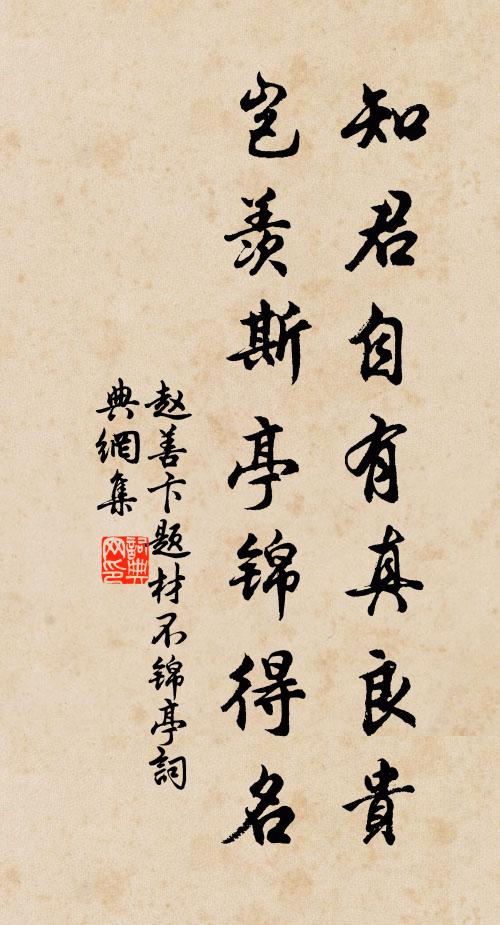 知君自有真良貴
岂羨斯亭锦得名
赵善卞题材不锦亭詞
典網集
詞典网印